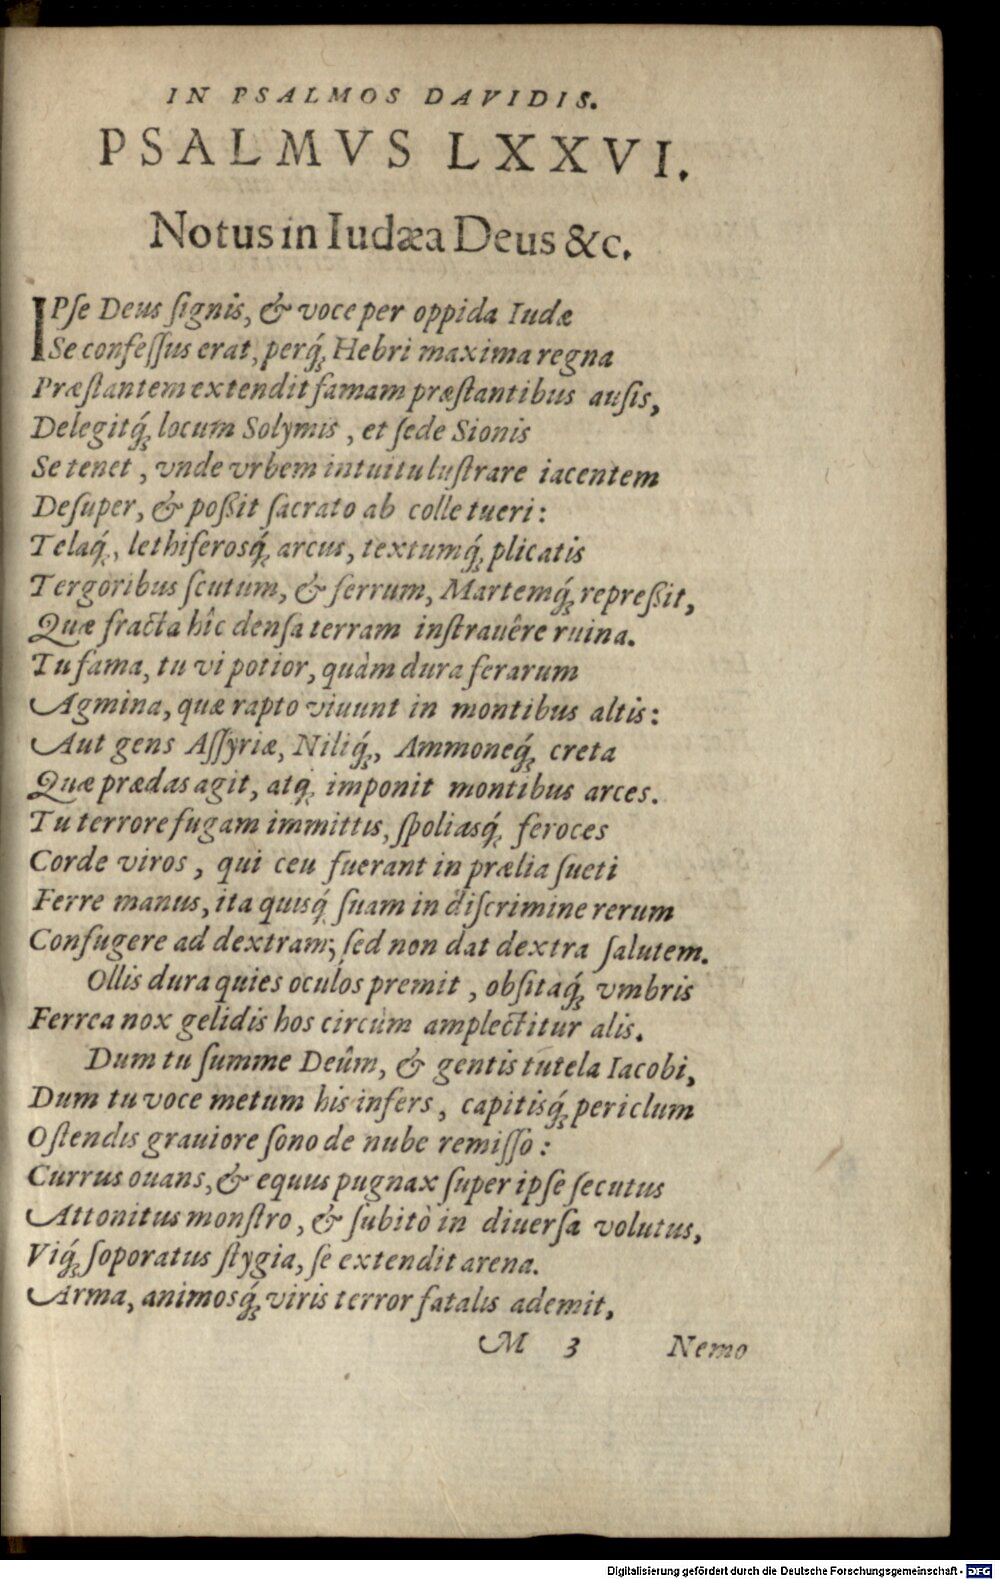 IN PSALMOS DAVIDIS.
PSALMVS LXXVI.
Notus in Iudæa Deus &c.
IPſe Deus ſignis, & voce per oppida Iudæ
Se confeſſus erat, perq́ꝫ Hebri maxima regna
Præſtantem extendit famam præſtantibus auſis,
Delegitq́ꝫ locum Solymis, et ſede Sionis
Se tenet, vnde vrbem intuitu luſtrare iacentem
Deſuper, & poßit ſacrato ab colle tueri:
Telaq́ꝫ, lethiferosq́ꝫ arcus, textumq́ꝫ plicatis
Tergoribus ſcutum, & ferrum, Martemq́ꝫ repreßit,
Quæ fracta hîc denſa terram inſtrauêre ruina.
Tu fama, tu vi potior, quàm dura ferarum
Agmina, quæ rapto viuunt in montibus altis:
Aut gens Aſſyriæ, Niliq́ꝫ, Ammoneq́ꝫ creta
Quæ prædas agit, atq́ꝫ imponit montibus arces.
Tu terrore fugam immittis, ſpoliasq́ꝫ feroces
Corde viros, qui ceu fuerant in prælia ſueti
Ferre manus, ita quisq́ꝫ ſuam in diſcrimine rerum
Confugere ad dextram; ſed non dat dextra ſalutem.
Ollis dura quies oculos premit, obſitaq́ꝫ vmbris
Ferrea nox gelidis hos circùm amplectitur alis.
Dum tu ſumme Deûm, & gentis tutela Iacobi,
Dum tu voce metum his infers, capitisq́ꝫ periclum
Oſtendis grauiore ſono de nube remiſſo:
Currus ouans, & equus pugnax ſuper ipſe ſecutus
Attonitus monſtro, & ſubitò in diuerſa volutus,
Viq́ꝫ ſoporatus ſtygia, ſe extendit arena.
Arma, animosq́ꝫ viris terror fatalis ademit,
M 3 Nemo
Digitalisierung gefördert durch die Deutsche Forschungsgemeinschaft - DFG